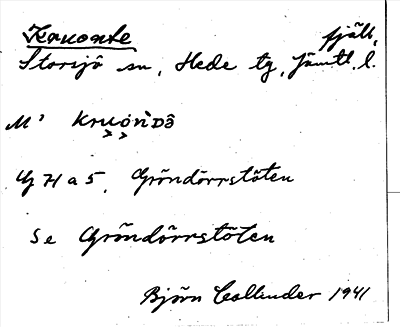 Kruonte fjäll,
Storsjö sn, Hede tg, Jämtl. l.
M' kruònDô
Gröndörrstöten
Se Gröndörrstöten
Björn Collinder 1941